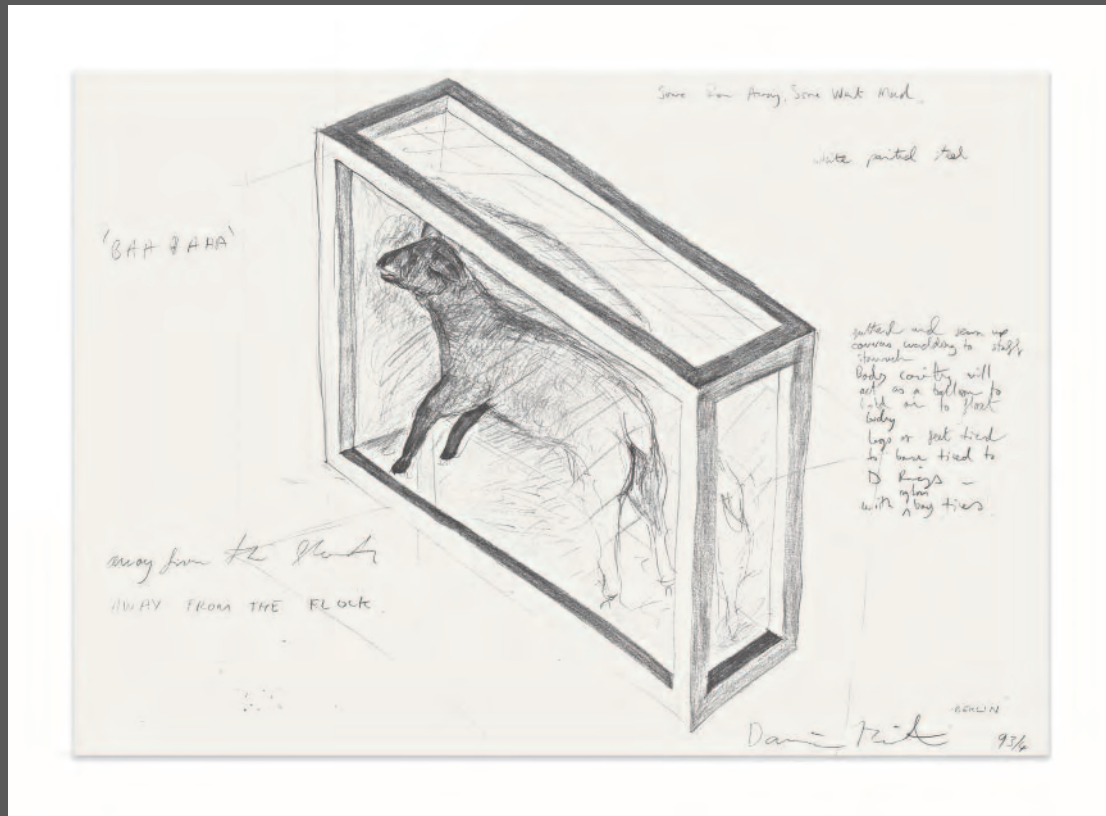 Some Ran Away, Some Went Mad.
white painted steel
'BAA BAAA'
and sewn up
canvas wadding to stuff
stomach
Body cavity will
act as a balloon to
hold air to float
body
legs or feet tied
to base tied to
D Rings –
nylon
with bag ties.
away from the flock
AWAY FROM THE FLOCK.
BERLIN
Damien Hirst
93/4